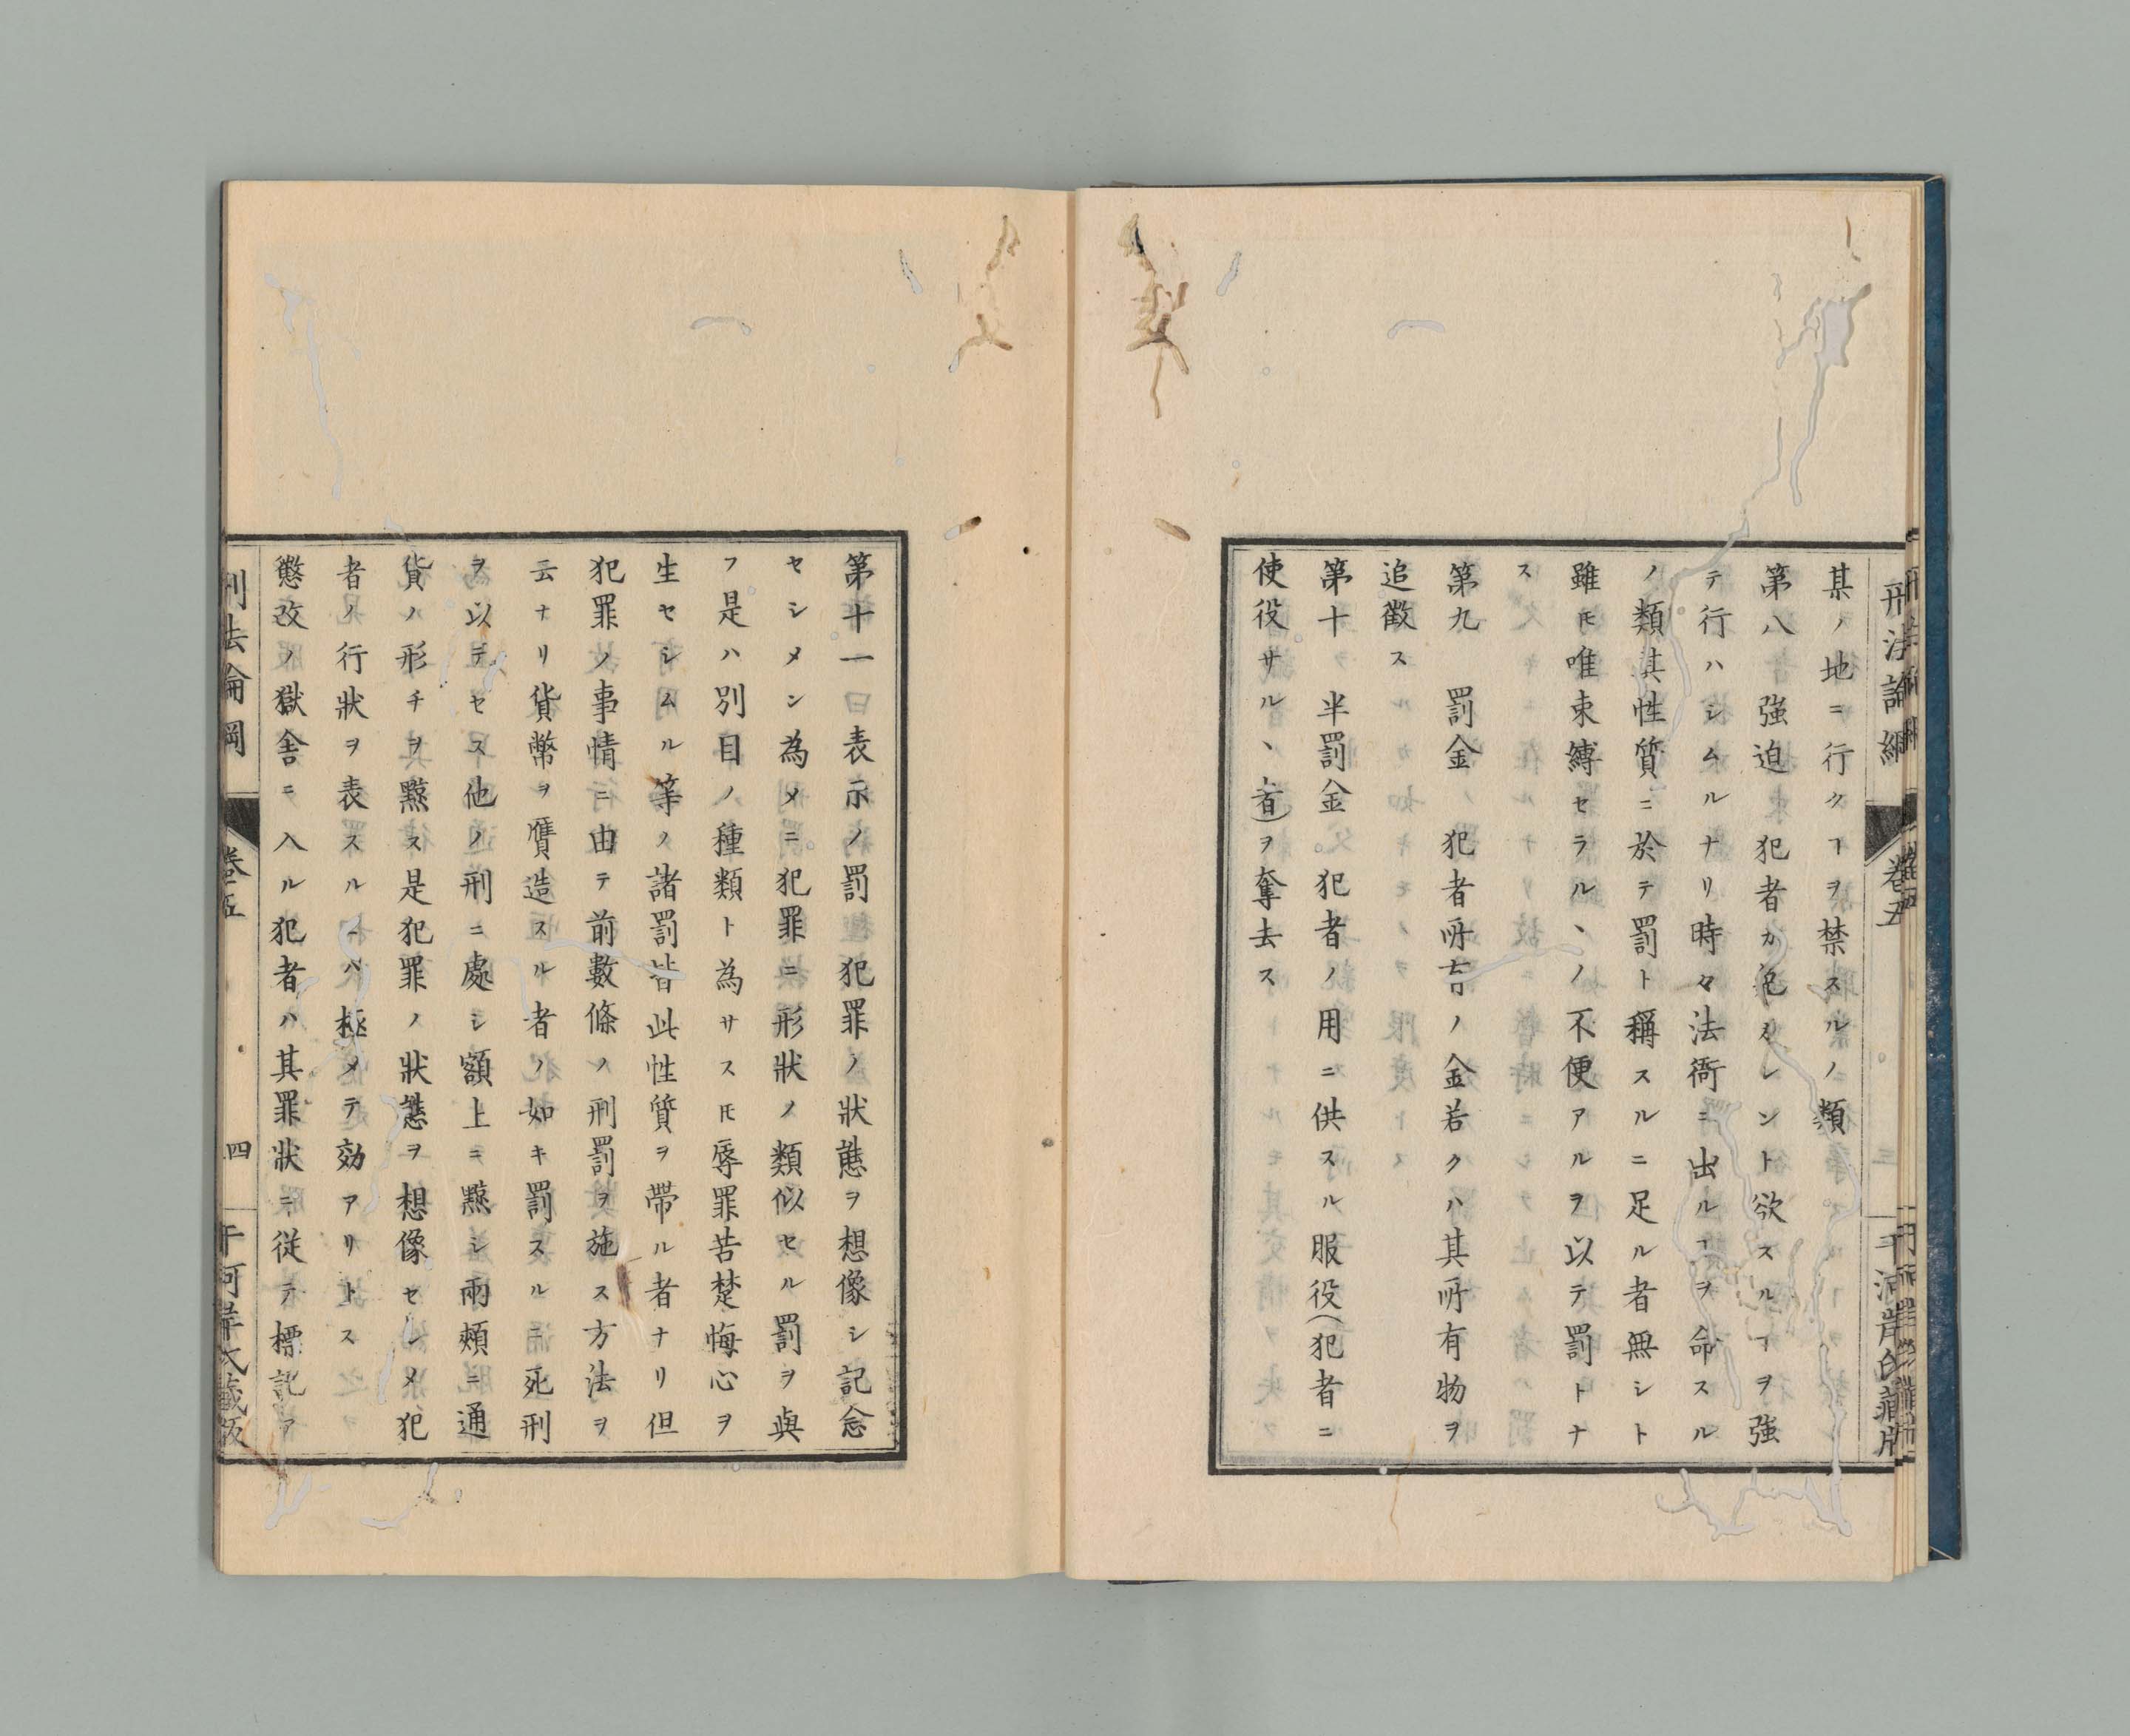 某ノ地ニ行クヿヲ禁スルノ類
第八　強迫　犯者カ免カレント欲スルヿヲ強
テ行ハシムルナリ時々法衙ニ出ルヿヲ命スル
ノ類其性質ニ於テ罰ト稱スルニ足ル者無シト
雖𪜈唯束縛セラルヽノ不便アルヲ以テ罰トナ
ス
第九　罰金　犯者所有ノ金若クハ其所有物ヲ
追徴ス
第十　半罰金　犯者ノ用ニ供スル服役(犯者ニ
使役サルヽ者)ヲ奪去ス
刑法論綱　巻五
第十一　表示ノ罰　犯罪ノ狀態ヲ想像シ記念
セシメン為メニ犯罪ニ形狀ノ類似セル罰ヲ與
フ是ハ別目ノ種類ト為サス𪜈辱罪苦楚悔心ヲ
生セシムル等ノ諸罰皆此性質ヲ帶ル者ナリ但
犯罪ノ事情ニ由テ前數條ノ刑罰ヲ施ス方法ヲ
云ナリ貨幣ヲ贋造スル者ノ如キ罰スルニ死刑
ヲ以テセス他ノ刑ニ處シ額上ニ㸃シ兩頰ニ通
貨ノ形チヲ㸃ス是犯罪ノ狀態ヲ想像セシメ犯
者ノ行狀ヲ表スルニハ極メテ効アリトス
懲改ノ獄舍ニ入ル犯者ハ其罪狀ニ従テ標記ア
刑法論綱　巻五　四